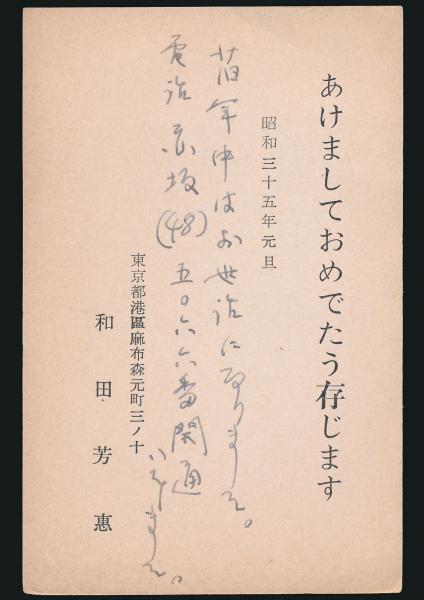 あけましておめでたう存じます
昭和三十五年元旦
旧年中はお世話になりました。
電話赤坂(48)五〇六六番開通
いたしました。
東京都港區麻布森元町三ノ十
和田芳惠